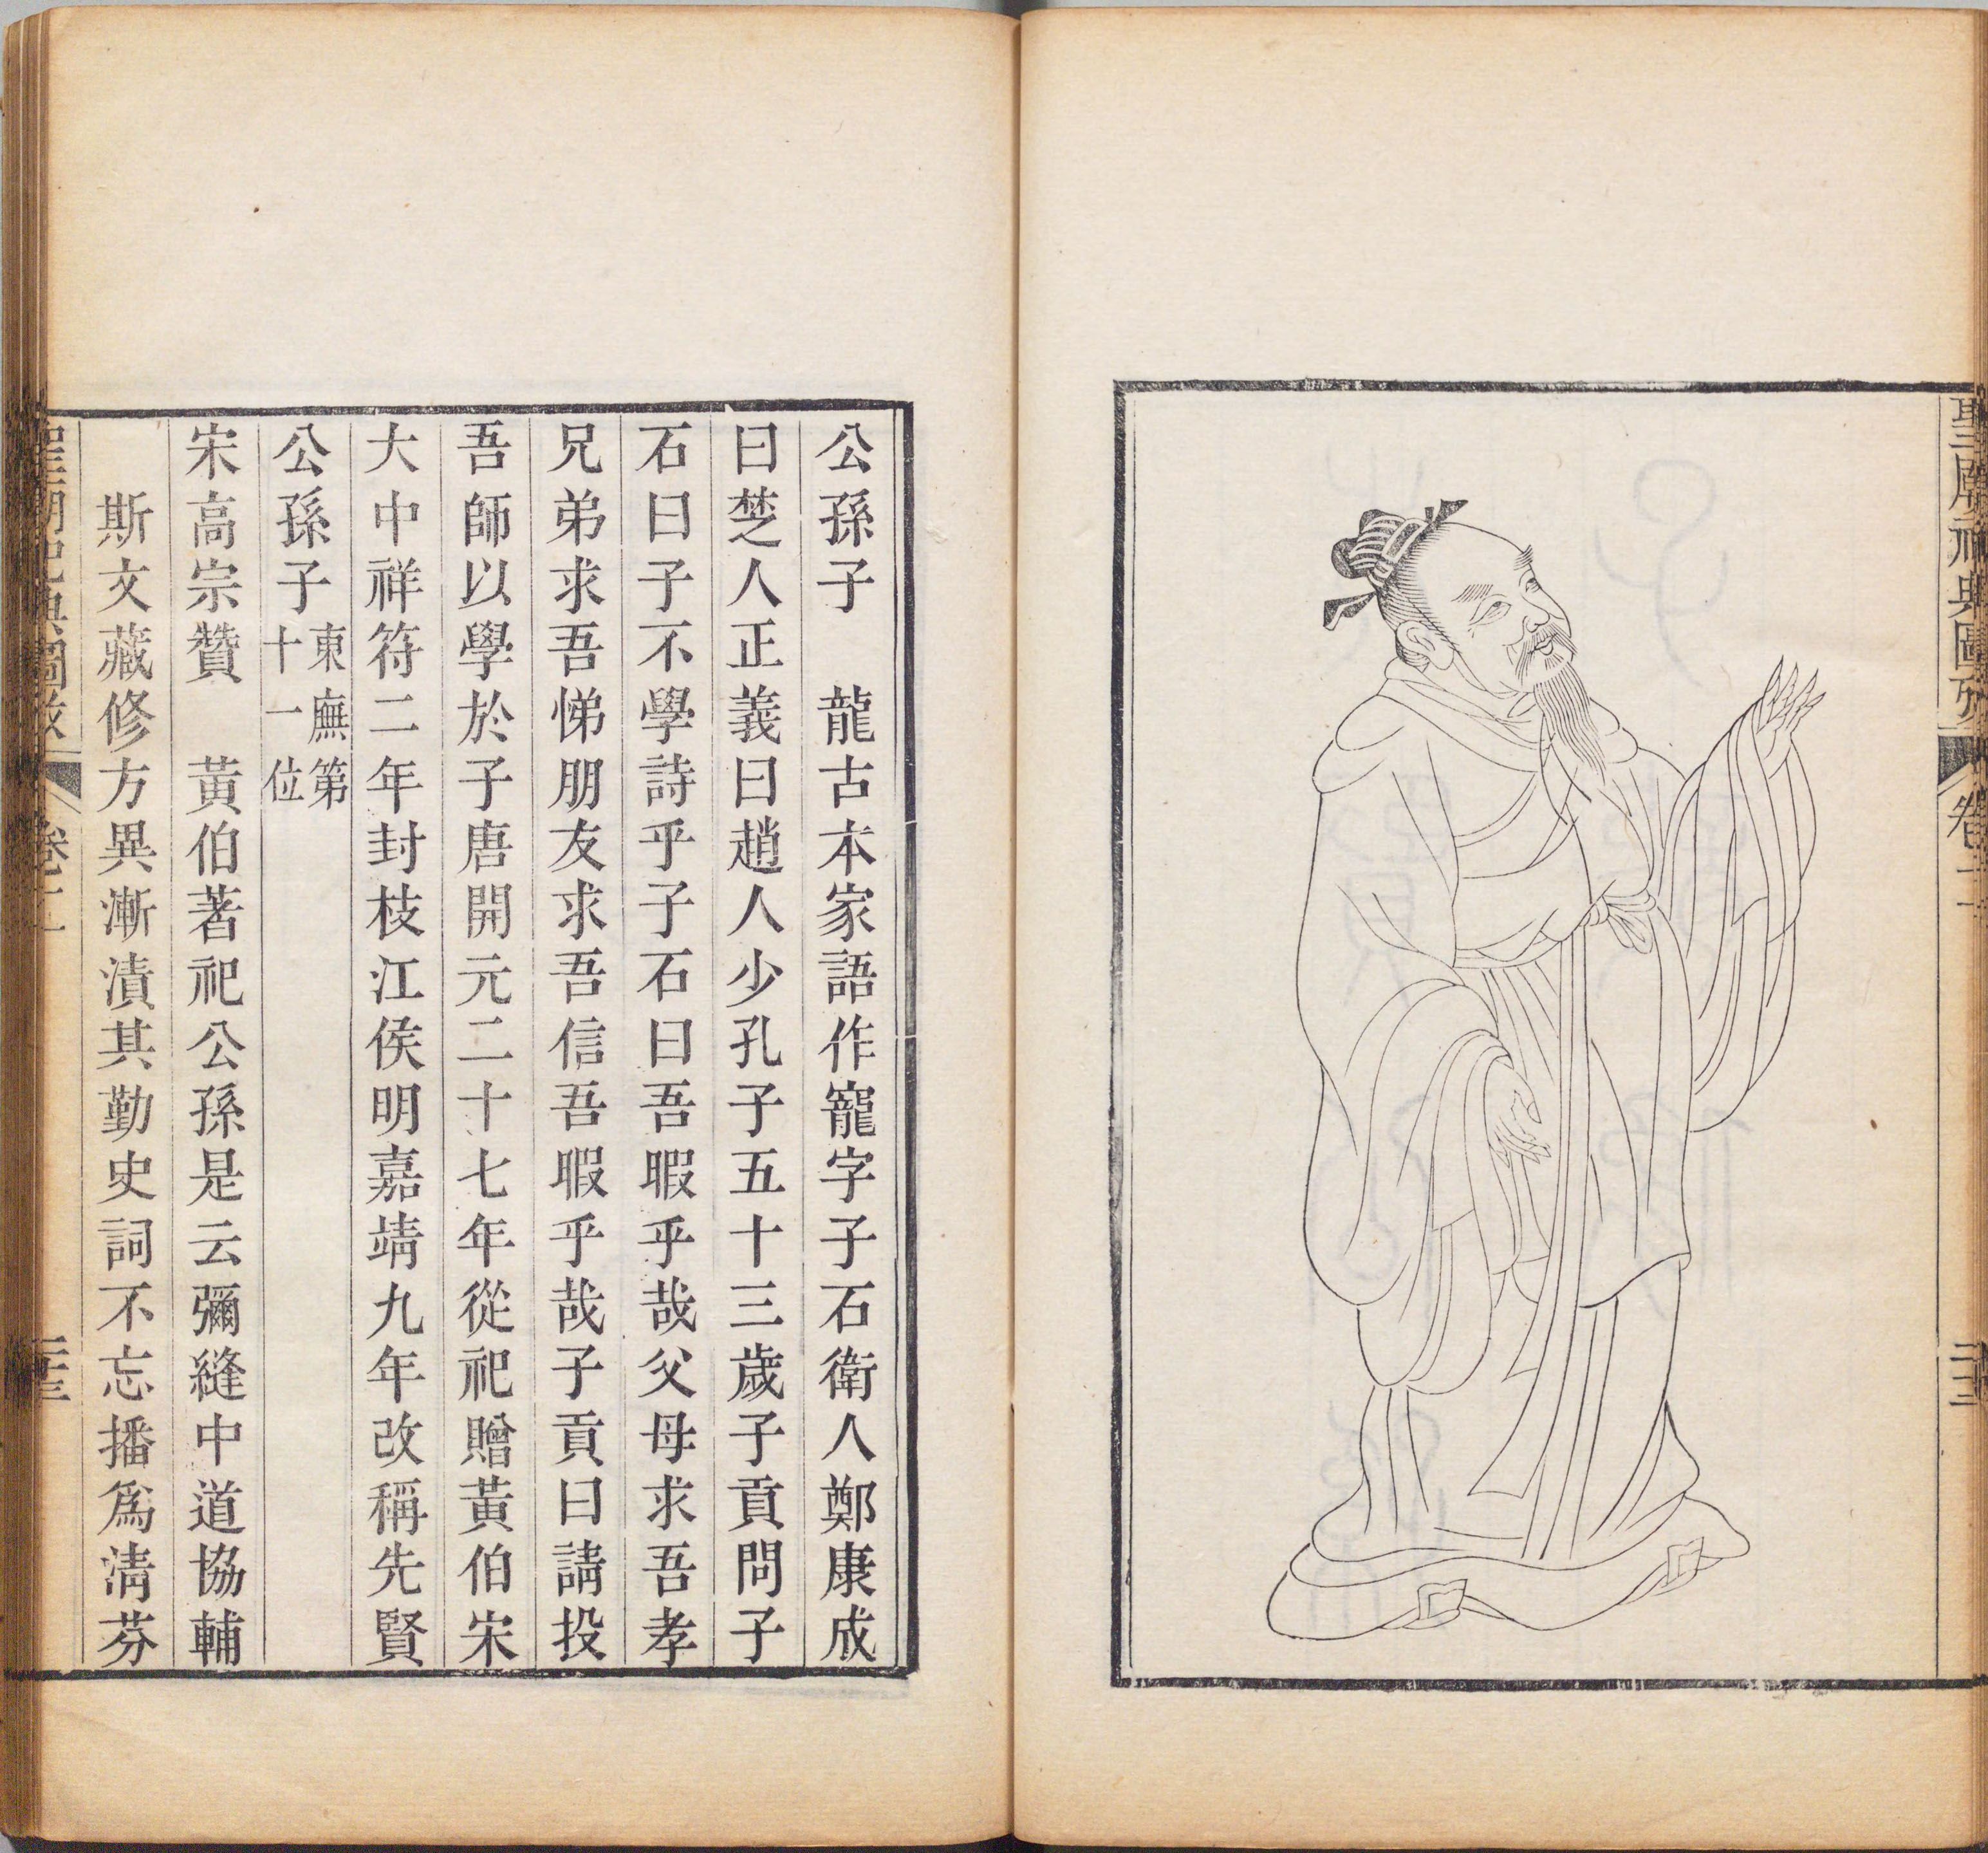 聖廟祀典圖攷
卷二
公孫子　龍古本家語作寵字子石衛人鄭康成
曰楚人正義曰趙人少孔子五十三歲子貢問子
石曰子不學詩乎子石曰吾暇乎哉父母求吾孝
兄弟求吾悌朋友求吾信吾暇乎哉子貢曰請投
吾師以學於子唐開元二十七年從祀贈黃伯宋
大中祥符二年封枝江侯明嘉靖九年改稱先賢
公孫子
東廡第
十一位
宋高宗贊　黃伯著祀公孫是云彌縫中道協輔
斯文藏修方異漸漬其勤史詞不忘播爲淸芬